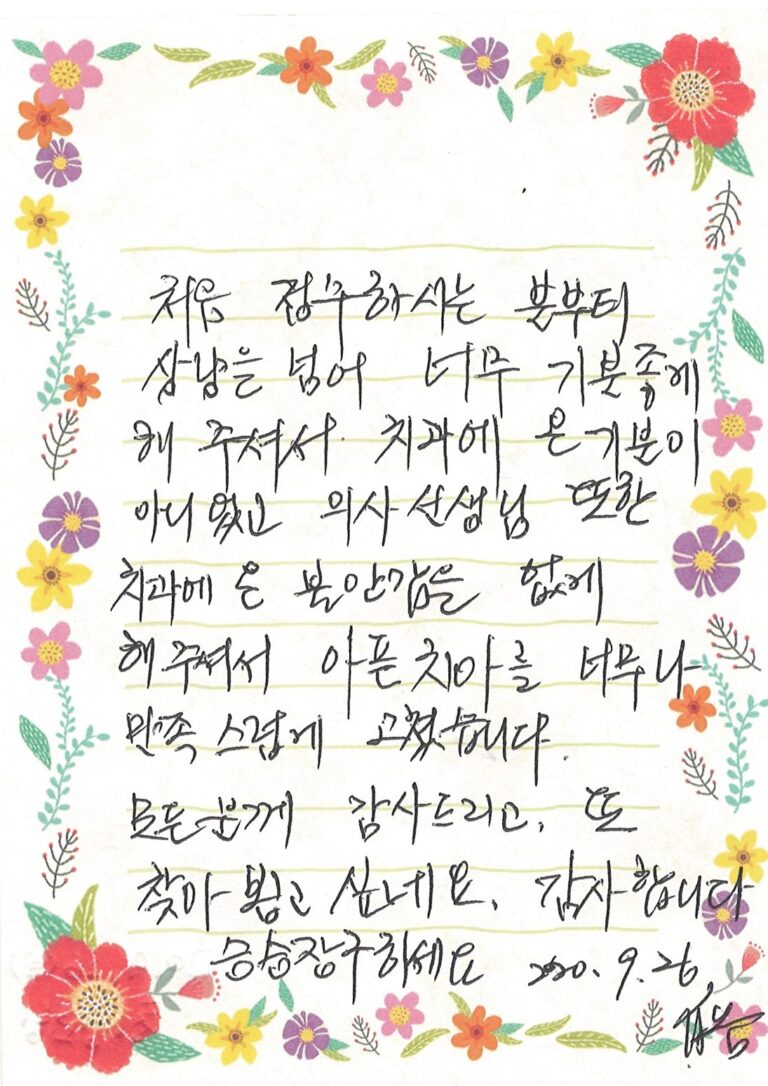 처음 접수하시는 분부터
상냥을 넘어 너무 기분좋게
해 주셔서. 치과에 온 기분이
아니였고 의사선생님 또한
치과에 온 불안감을 없게
해 주셔서 아픈 치아를 너무나
만족스럽게 고쳤습니다.
모든분께 감사드리고, 또
찾아뵙고 싶네요. 감사합니다
승승장구하세요 2020. 9. 26.